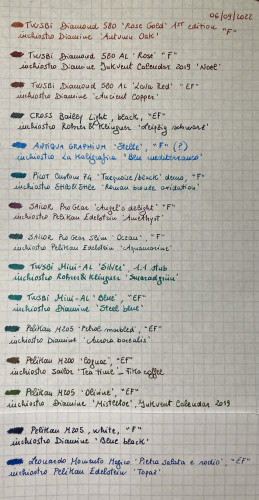 06/09/2022
TWSBI Diamond 580 'Rose Gold' 1ST edition "F"
inchiostro Diamine 'Autumn Oak'
TWSBI Diamond 580 AL 'Rose' "F"
inchiostro Diamine InkVent Calendar 2019 'Noel'
TWSBI Diamond 580 AL 'Lava Red' "EF"
inchiostro Diamine 'Ancient Copper'
CROSS Bailey Light, black, "EF"
inchiostro Rohrer & Klingner 'Leipzig schwarz'
ANTIQUA GRAPHIUM 'Stelle', "F" (?)
inchiostro La Kaligrafica 'Blu mediterraneo'
Pilot Custom 74 'Turquoise/black' demo, "F"
inchiostro 'Roman bronze oxidation'
SAILOR Pro Gear 'Angel's delight' "F"
inchiostro Pelikan Edelstein 'Amethyst'
SAILOR Pro Gear Slim 'Ocean' "F"
inchiostro Pelikan Edelstein 'Aquamarine'
TWSBI Mini-AL 'Silver', 1.1 stub
inchiostro Rohrer & Klingner 'Smaragdgrün'
TWSBI Mini-AL 'Blue', "EF"
inchiostro Diamine 'Steel blue'
Pelikan M205 'Petrol marbled', "EF"
inchiostro Diamine 'Aurora borealis'
Pelikan M200 'Cognac', "EF"
inchiostro Sailor 'Tea Time' - Fika coffee
Pelikan M205 'Olivine', "EF"
inchiostro Diamine 'Mistletoe', InkVent Calendar 2019
Pelikan M205, white, "F"
inchiostro Diamine 'Blue black'
Leonardo Momento Magico 'Pietra salata e rodio', "EF"
inchiostro Pelikan Edelstein 'Topaz'